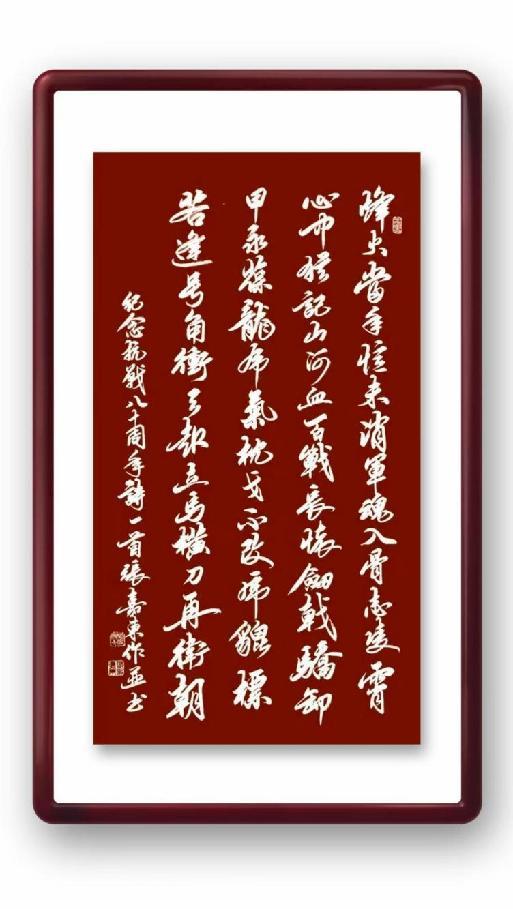 烽火當年憶未消軍魂入骨志凌霄
心中猶記山河血百戰長劍戟驕卸
甲永葆龍虎氣枕戈不改虎貔標
若逢号角衝天起立馬橫刀再衛朝
紀念抗戰八十周年詩一首張東作並书